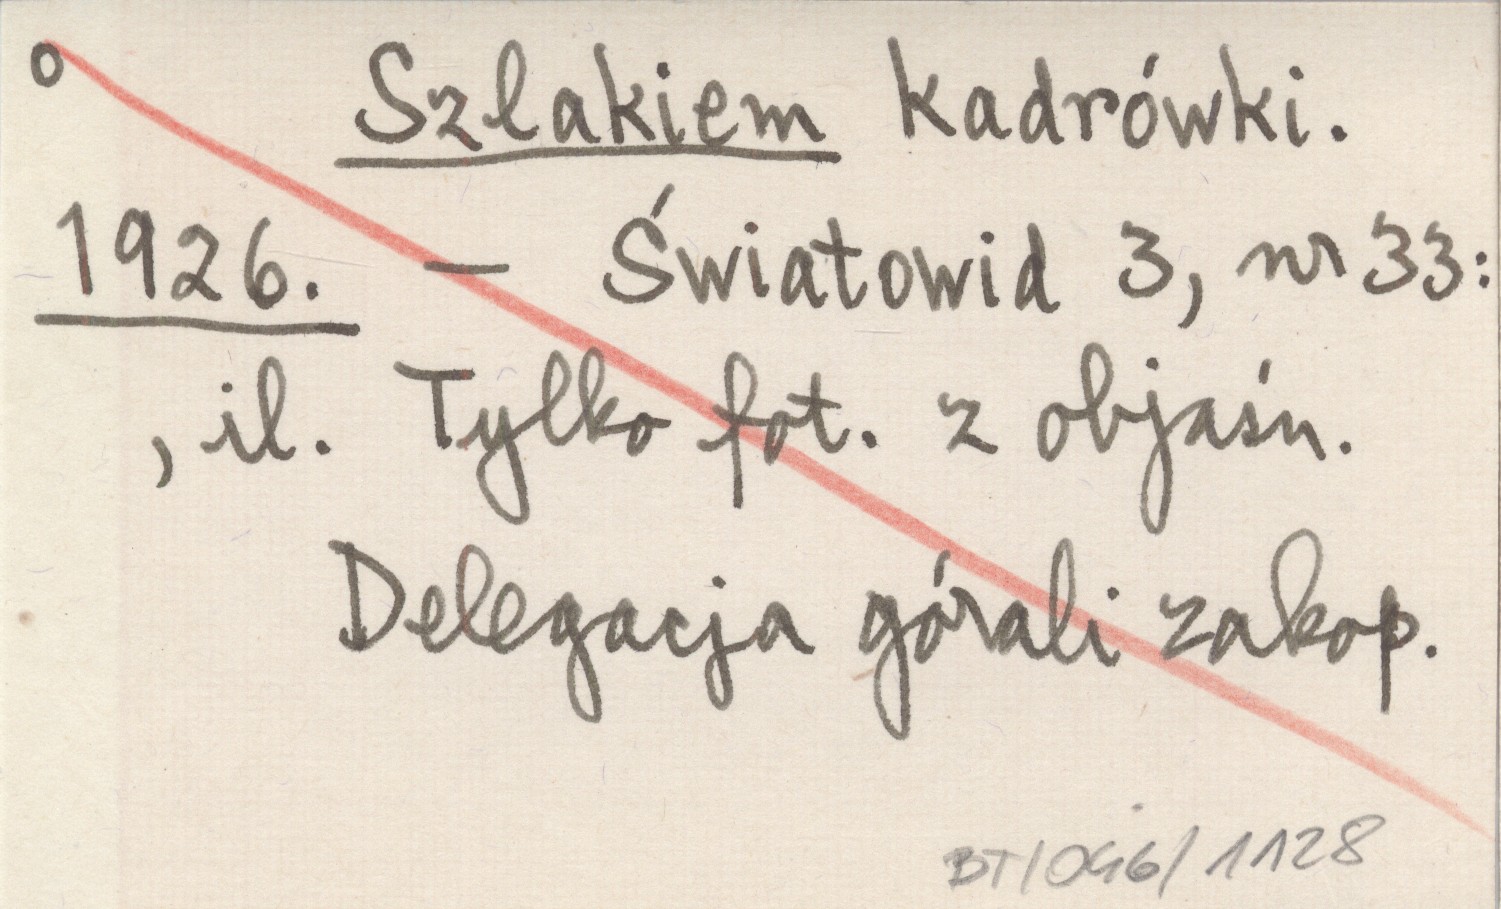 o Szlakiem kadrówki.
1926. — Światowid 3, nr 33:
, il. Tylko fot. z objaśn.
Delegacja górali zakop.
BT/046/1128